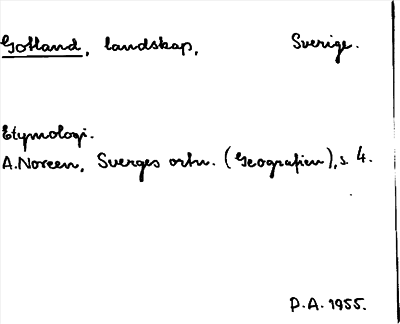 Gotland, landskap, Sverige.
Etymologi.
A. Noreen, Sverges ortn. (Geografien), s. 4.
P.A. 1955.